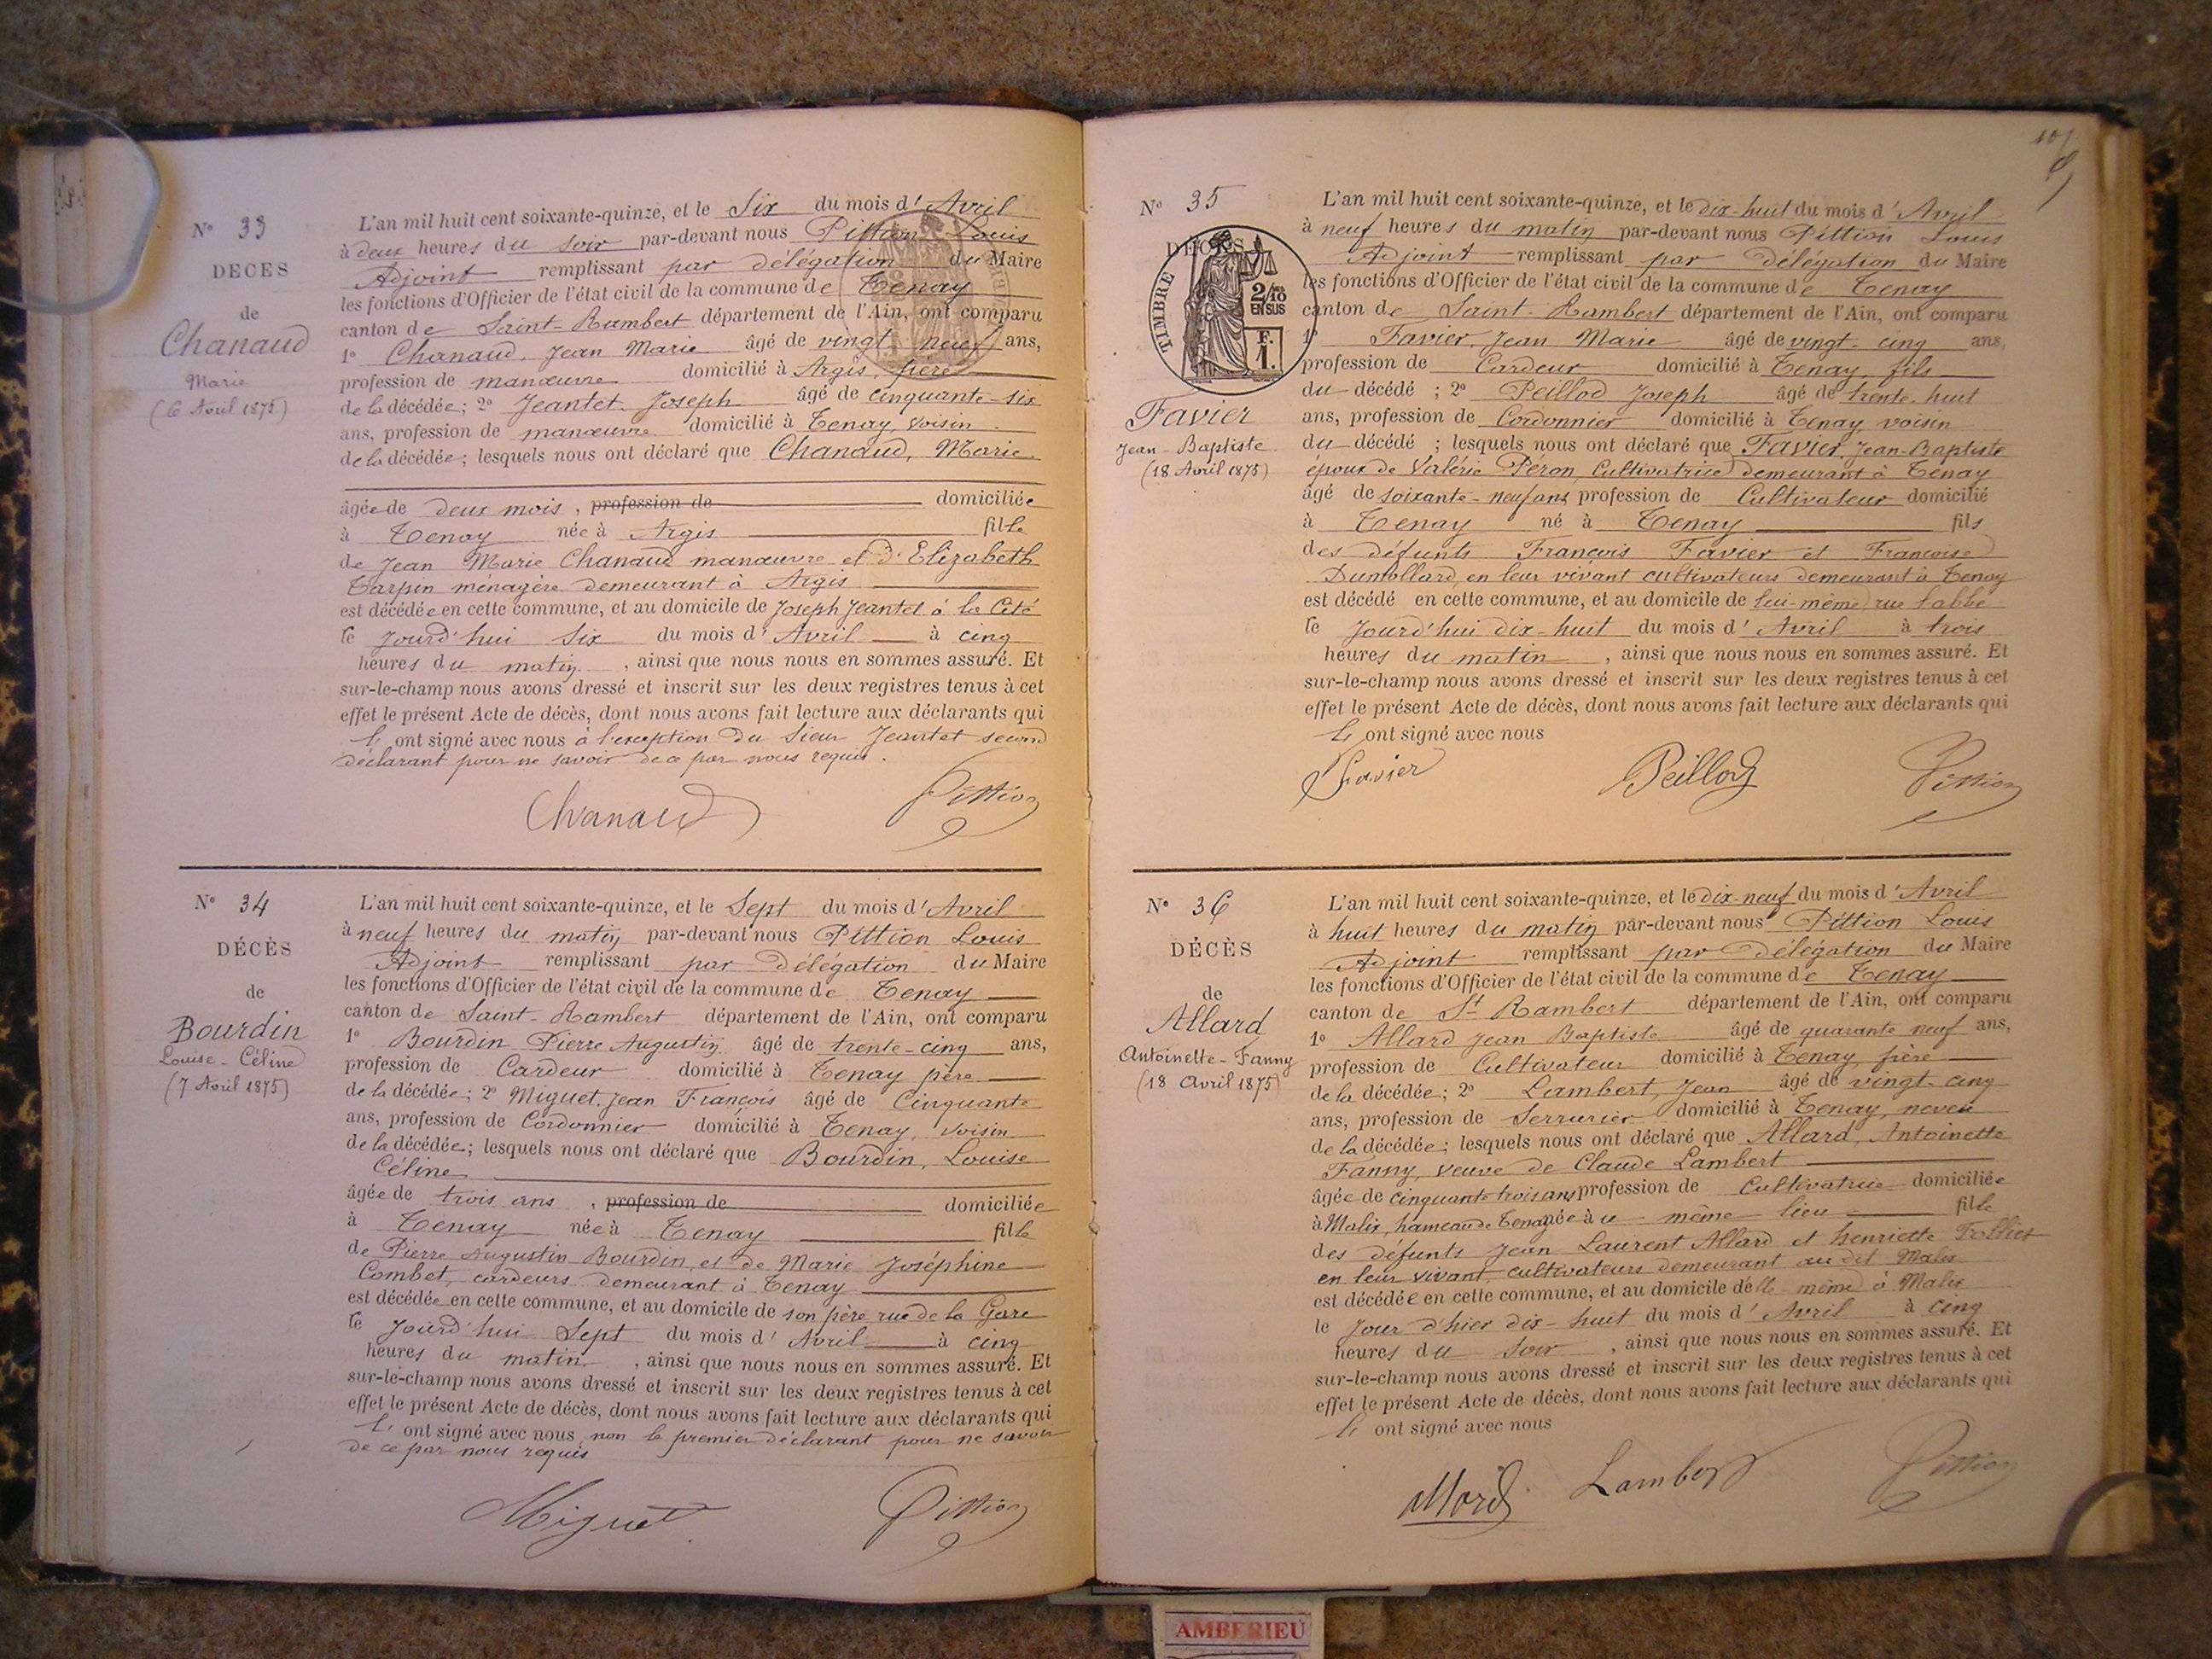 N° 33
DÉCÈS
de
Chanaud
Marie
(6 Avril 1875)
L'an mil huit cent soixante-quinze, et le Six du mois d'Avril
à deux heures du soir par-devant nous Pittion Louis
Adjoint remplissant par délégation du Maire
les fonctions d'Officier de l'état civil de la commune de Tenay
canton de Saint-Rambert département de l'Ain, ont comparu
1° Chanaud, Jean Marie âgé de vingt neuf ans,
profession de manœuvre domicilié à Argis, père
de la décédée; 2° Jeantet, Joseph âgé de cinquante-six
ans, profession de manœuvre domicilié à Tenay, voisin
de la décédée; lesquels nous ont déclaré que Chanaud, Marie
âgée de deux mois, profession de domiciliée
à Tenay née à Argis fille
de Jean Marie Chanaud manœuvre et d'Elizabeth
Tarpin ménagère demeurant à Argis
est décédée en cette commune, et au domicile de Joseph Jeantet à la Cité
le jourd'hui Six du mois d'Avril à cinq
heures du matin, ainsi que nous nous en sommes assuré. Et
sur-le-champ nous avons dressé et inscrit sur les deux registres tenus à cet
effet le présent Acte de décès, dont nous avons fait lecture aux déclarants qui
l' ont signé avec nous à l'exception du Sieur Jeantet second
déclarant pour ne savoir de ce par nous requis.
Chanaud Pittion
N° 34
DÉCÈS
de
Bourdin
Louise-Céline
(7 Avril 1875)
L'an mil huit cent soixante-quinze, et le Sept du mois d'Avril
à neuf heures du matin par-devant nous Pittion Louis
Adjoint remplissant par délégation du Maire
les fonctions d'Officier de l'état civil de la commune de Tenay
canton de Saint-Rambert département de l'Ain, ont comparu
1° Bourdin Pierre Augustin âgé de trente-cinq ans,
profession de Cardeur domicilié à Tenay père
de la décédée; 2° Miguet, Jean François âgé de Cinquante
ans, profession de Cordonnier domicilié à Tenay, voisin
de la décédée; lesquels nous ont déclaré que Bourdin, Louise
Céline
âgée de trois ans, profession de domiciliée
à Tenay née à Tenay fille
de Pierre Augustin Bourdin, et de Marie Joséphine
Combet, cardeurs demeurant à Tenay
est décédée en cette commune, et au domicile de son père rue de la Gare
le jourd'hui Sept du mois d'Avril à cinq
heures du matin, ainsi que nous nous en sommes assuré. Et
sur-le-champ nous avons dressé et inscrit sur les deux registres tenus à cet
effet le présent Acte de décès, dont nous avons fait lecture aux déclarants qui
l' ont signé avec nous non le premier déclarant pour ne savoir
de ce par nous requis
Miguet Pittion
107
N° 35
DÉCÈS
TIMBRE
2/10 EN SUS
F. 1.
Favier
Jean-Baptiste
(18 Avril 1875)
L'an mil huit cent soixante-quinze, et le dix-huit du mois d'Avril
à neuf heures du matin par-devant nous Pittion Louis
Adjoint remplissant par délégation du Maire
les fonctions d'Officier de l'état civil de la commune de Tenay
canton de Saint-Rambert département de l'Ain, ont comparu
1° Favier, Jean Marie âgé de vingt-cinq ans,
profession de Cardeur domicilié à Tenay, fils
du décédé; 2° Peillod Joseph âgé de trente-huit
ans, profession de Cordonnier domicilié à Tenay voisin
du décédé; lesquels nous ont déclaré que Favier, Jean-Baptiste
époux de Valérie Péron, Cultivatrice demeurant à Tenay
âgé de soixante-neuf ans profession de Cultivateur domicilié
à Tenay né à Tenay fils
des défunts François Favier et Françoise
Dumollard, en leur vivant cultivateurs demeurant à Tenay
est décédé en cette commune, et au domicile de lui-même, rue l'abbé
le jourd'hui dix-huit du mois d'Avril à trois
heures du matin, ainsi que nous nous en sommes assuré. Et
sur-le-champ nous avons dressé et inscrit sur les deux registres tenus à cet
effet le présent Acte de décès, dont nous avons fait lecture aux déclarants qui
l' ont signé avec nous
Favier Peillod Pittion
N° 36
DÉCÈS
de
Allard
Antoinette-Fanny
(18 Avril 1875)
L'an mil huit cent soixante-quinze, et le dix-neuf du mois d'Avril
à huit heures du matin par-devant nous Pittion Louis
Adjoint remplissant par délégation du Maire
les fonctions d'Officier de l'état civil de la commune de Tenay
canton de St Rambert département de l'Ain, ont comparu
1° Allard Jean Baptiste âgé de quarante neuf ans,
profession de Cultivateur domicilié à Tenay, frère
de la décédée; 2° Lambert, Jean âgé de vingt-cinq
ans, profession de Serrurier domicilié à Tenay, neveu
de la décédée; lesquels nous ont déclaré que Allard, Antoinette
Fanny, veuve de Claude Lambert
âgée de cinquante trois ans profession de Cultivatrice domiciliée
à Malix, hameau de Tenay née à ce même lieu fille
des défunts Jean Laurent Allard et henriette Folliet
en leur vivant, cultivateurs demeurant au dit Malix
est décédée en cette commune, et au domicile d'elle-même à Malix
le jour d'hier dix-huit du mois d'Avril à cinq
heures du Soir, ainsi que nous nous en sommes assuré. Et
sur-le-champ nous avons dressé et inscrit sur les deux registres tenus à cet
effet le présent Acte de décès, dont nous avons fait lecture aux déclarants qui
l' ont signé avec nous
Allard Lambert Pittion
AMBERIEU